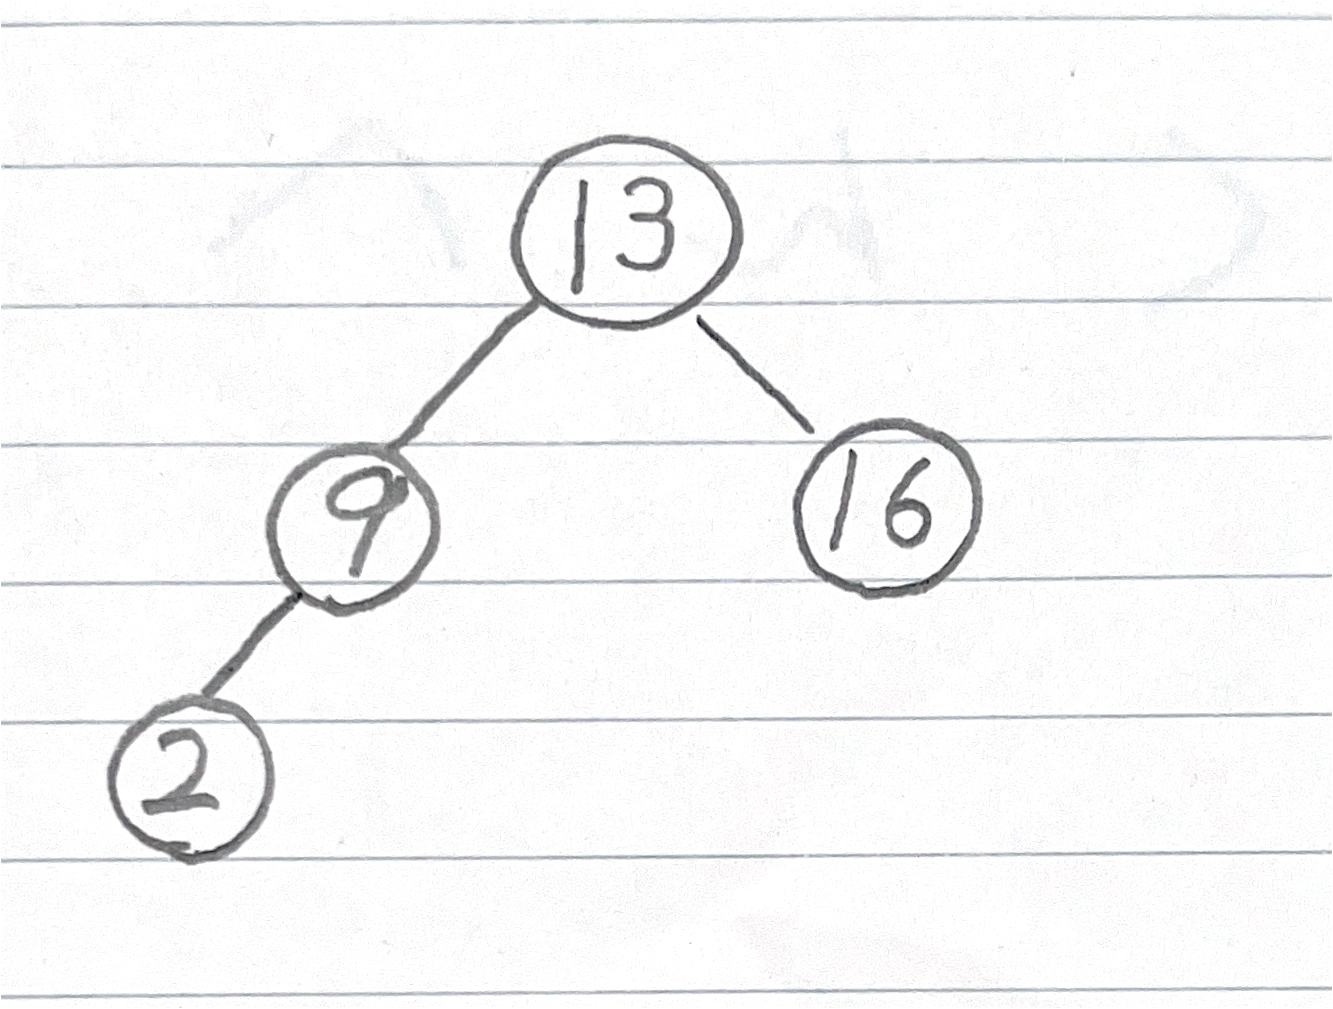 13
9 16
2